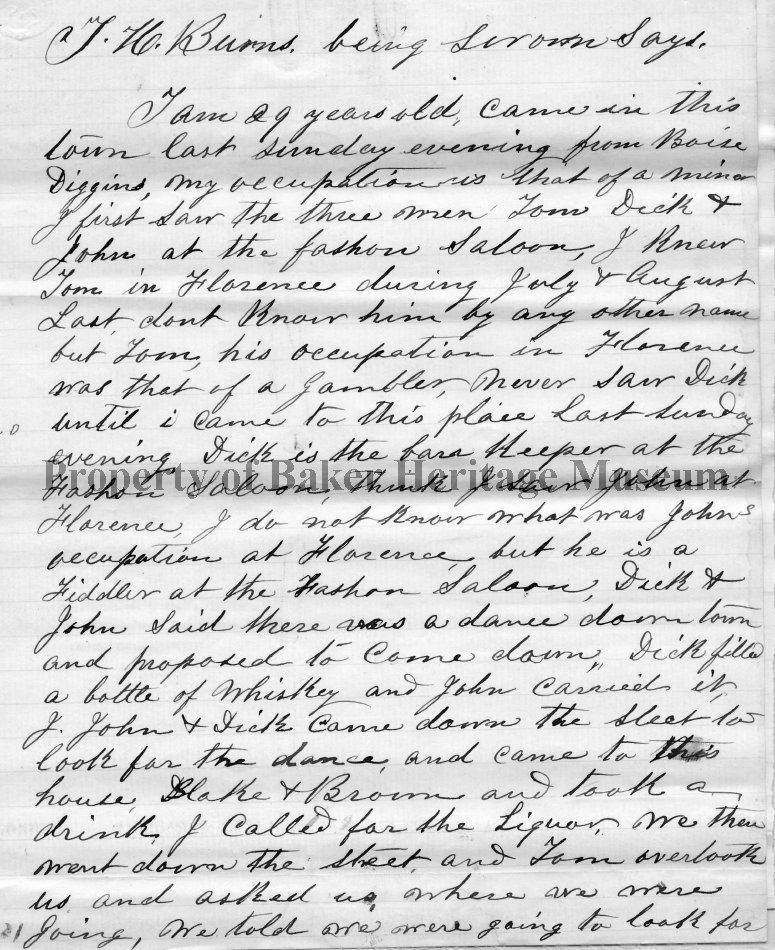 T. H. Burns. being sworn Says.
I am 29 years old, came in this
town last sunday evening from Boise
Diggins, my occupation is that of a miner
I first saw the three men Tom Dick &
John at the fashon Saloon, I Knew
Tom in Florence during July & August
Last, dont Know him by any other name
but Tom, his occupation in Florence
was that of a Gambler, Never Saw Dick
until i came to this place Last sunday
evening Dick is the bara Keeper at the
Fashon Saloon, think I saw John at
Florence, I do not Know what was Johns
occupation at Florence, but he is a
Fiddler at the Fashon Saloon, Dick &
John Said there was a dance down town
and proposed to Come down, Dick filled
a bottle of Whiskey and John Carried it,
I. John & Dick Came down the steet to
look for the dance, and came to this
house, Blake & Brown and took a
drink, I Called for the Liquor, We then
went down the steet, and Tom overtook
us and asked us, where we were
Going, We told we were going to look for
Property of Baker Heritage Museum